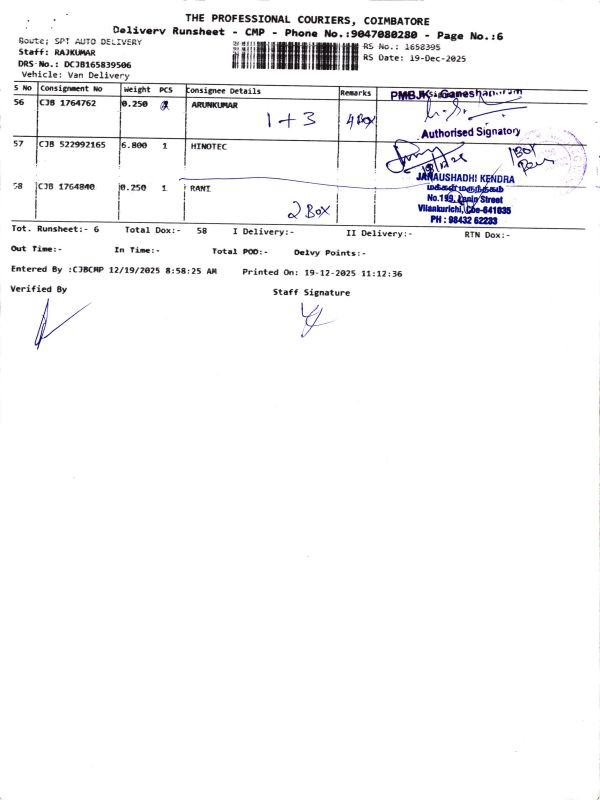 THE PROFESSIONAL COURIERS, COIMBATORE
Delivery Runsheet - CMP - Phone No.:9047080280 - Page No.:6
Route; SPT AUTO DELIVERY
RS No.: 1658395
Staff: RAJKUMAR
RS Date: 19-Dec-2025
DRS No.: DCJB165839506
Vehicle: Van Delivery
S No Consignment No Weight PCS Consignee Details Remarks
PMBJK - Ganeshapuram
56 CJB 1764762 0.250 ARUNKUMAR
1+3 4 Box
Authorised Signatory
57 CJB 522992165 6.800 1 HINOTEC
1 Box
JANAUSHADHI KENDRA
58 CJB 1764840 0.250 1 RANI
மக்கள் மருந்தகம்
No.199, Street
2 Box
Vilankurichi, Cbe-641035
PH : 98432 62233
Tot. Runsheet:- 6 Total Dox:- 58 I Delivery:- II Delivery:- RTN Dox:-
Out Time:- In Time:- Total POD:- Delvy Points:-
Entered By :CJBCMP 12/19/2025 8:58:25 AM Printed On: 19-12-2025 11:12:36
Verified By Staff Signature